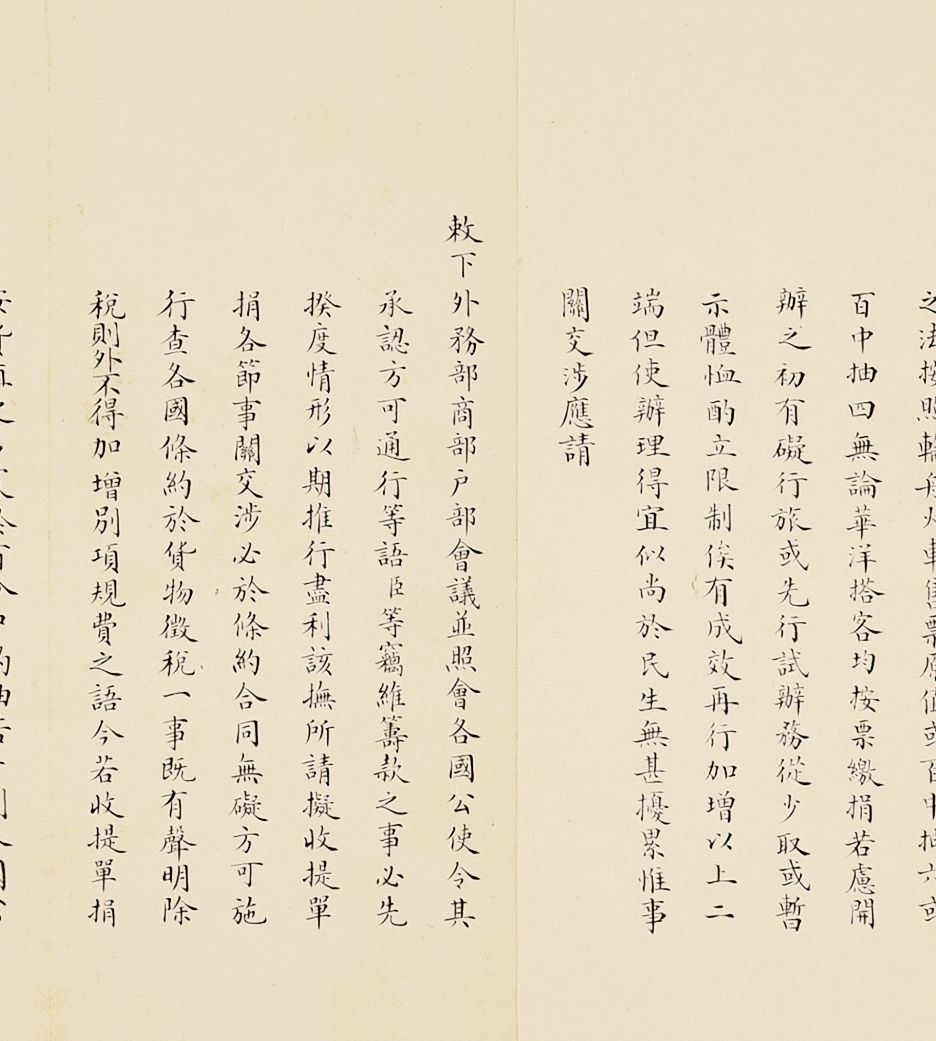 之法按照輪船火車售票原值或百中抽六或
百中抽四無論華洋搭客均按票繳捐若慮開
辦之初有礙行旅或先行試辦務從少取或暫
示體恤酌立限制俟有成效再行加增以上二
端但使辦理得宜似尚於民生無甚擾累惟事
關交涉應請
敕下外務部商部戶部會議並照會各國公使令其
承認方可通行等語臣等竊維籌款之事必先
揆度情形以期推行盡利該撫所請擬收提單
捐各節事關交涉必於條約合同無礙方可施
行查各國條約於貨物徵稅一事既有聲明除
稅則外不得加增別項規費之語今若收提單捐